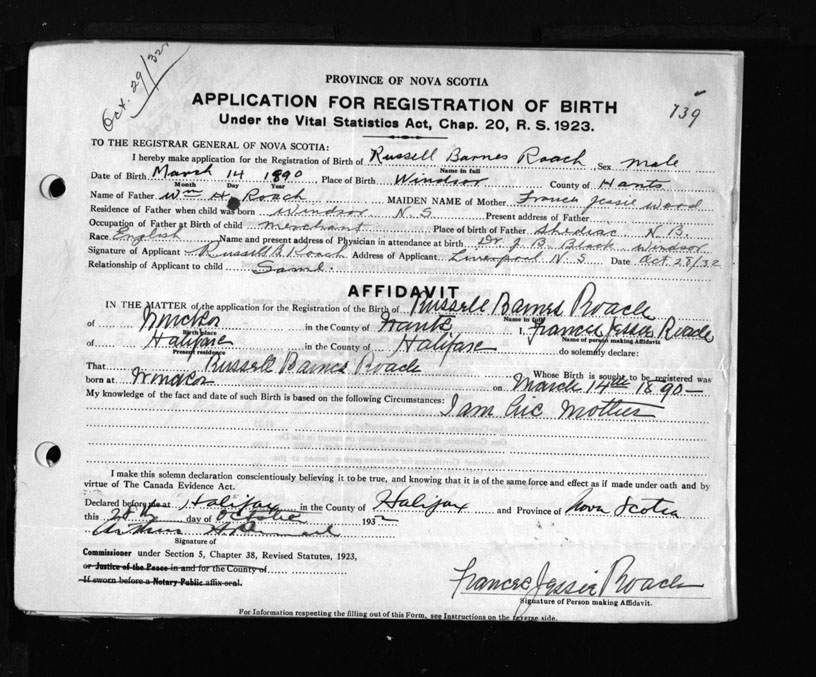 Oct. 29/32
739
PROVINCE OF NOVA SCOTIA
APPLICATION FOR REGISTRATION OF BIRTH
Under the Vital Statistics Act, Chap. 20, R. S. 1923.
TO THE REGISTRAR GENERAL OF NOVA SCOTIA:
I hereby make application for the Registration of Birth of Russell Barnes Roach Sex male
Name in full
Date of Birth March 14 1890 Place of Birth Windsor County of Hants
Month Day Year
Name of Father Wm H. Roach MAIDEN NAME of Mother Frances Jessie Wood
Residence of Father when child was born Windsor N. S Present address of Father
Occupation of Father at Birth of child merchant Place of birth of Father Shediac N. B.
Race English Name and present address of Physician in attendance at birth Dr. J. B. Black Windsor
Signature of Applicant Russell B Roach Address of Applicant Liverpool N. S Date Oct 28/32
Relationship of Applicant to child
AFFIDAVIT
IN THE MATTER of the application for the Registration of the Birth of Russell Barnes Roach
Name in full
of Windsor in the County of Hants I, Frances Jessie Roach
Birth place Name of person making Affidavit
of Halifax in the County of Halifax do solemnly declare:
Present residence
That Russell Barnes Roach Whose Birth is sought to be registered was
born at Windsor on March 14th 1890—
My knowledge of the fact and date of such Birth is based on the following Circumstances: I am his Mother
I make this solemn declaration conscientiously believing it to be true, and knowing that it is of the same force and effect as if made under oath and by
virtue of The Canada Evidence Act.
Declared before me at Halifax in the County of Halifax and Province of Nova Scotia
this 28th day of October 1932
Arthur
Signature of
Commissioner under Section 5, Chapter 38, Revised Statutes, 1923,
or Justice of the Peace in and for the County of
If sworn before a Notary Public affix seal.
Frances Jessie Roach
Signature of Person making Affidavit.
For Information respecting the filling out of this Form, see Instructions on the reverse side.